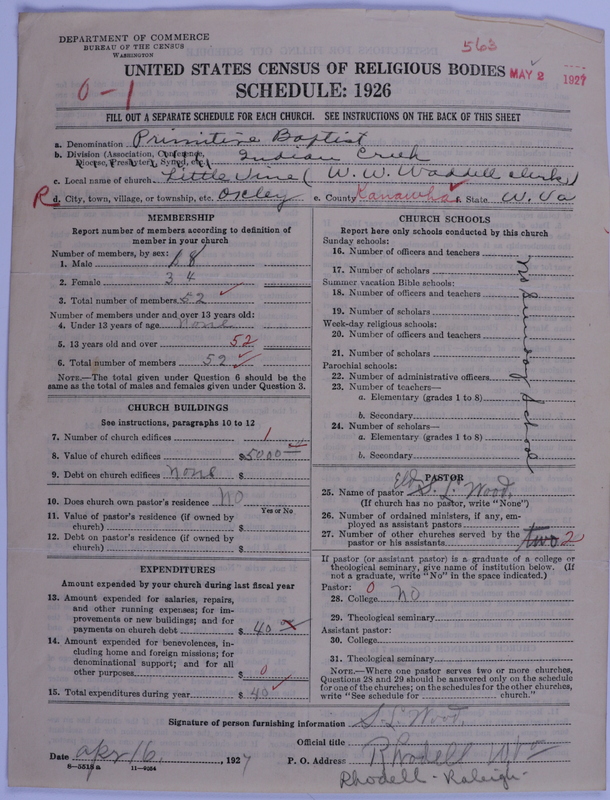 DEPARTMENT OF COMMERCE
BUREAU OF THE CENSUS
WASHINGTON
563
UNITED STATES CENSUS OF RELIGIOUS BODIES
MAY 2 1927
0-1
SCHEDULE: 1926
FILL OUT A SEPARATE SCHEDULE FOR EACH CHURCH. SEE INSTRUCTIONS ON THE BACK OF THIS SHEET
a. Denomination Primitive Baptist
b. Division (Association, Conference, Diocese, Presbytery, Synod, etc.) Indian Creek
c. Local name of church Little Vine (W. W. Waddell clerk)
R d. City, town, village, or township, etc. Oxley e. County Kanawha f. State W. Va
MEMBERSHIP
Report number of members according to definition of
member in your church
Number of members, by sex:
1. Male 18
2. Female 34
3. Total number of members 52
Number of members under and over 13 years old:
4. Under 13 years of age none
5. 13 years old and over 52
6. Total number of members 52
NOTE.—The total given under Question 6 should be the
same as the total of males and females given under Question 3.
CHURCH BUILDINGS
See instructions, paragraphs 10 to 12
7. Number of church edifices 1
8. Value of church edifices $5000
9. Debt on church edifices none
10. Does church own pastor's residence? NO
Yes or No
11. Value of pastor's residence (if owned by
church) $
12. Debt on pastor's residence (if owned by
church) $
EXPENDITURES
Amount expended by your church during last fiscal year
13. Amount expended for salaries, repairs,
and other running expenses; for im-
provements or new buildings; and for
payments on church debt $ 40
14. Amount expended for benevolences, in-
cluding home and foreign missions; for
denominational support; and for all
other purposes $ 0
15. Total expenditures during year $ 40
CHURCH SCHOOLS
Report here only schools conducted by this church
Sunday schools:
16. Number of officers and teachers
17. Number of scholars
Summer vacation Bible schools:
18. Number of officers and teachers
19. Number of scholars
Week-day religious schools:
20. Number of officers and teachers
21. Number of scholars
Parochial schools:
22. Number of administrative officers
23. Number of teachers—
a. Elementary (grades 1 to 8)
b. Secondary
24. Number of scholars—
a. Elementary (grades 1 to 8)
b. Secondary
No Sunday School
PASTOR
25. Name of pastor Eld S. L. Wood,
(If church has no pastor, write "None")
26. Number of ordained ministers, if any, em-
ployed as assistant pastors
27. Number of other churches served by the
pastor or his assistants two 2
If pastor (or assistant pastor) is a graduate of a college or
theological seminary, give name of institution below. (If
not a graduate, write "No" in the space indicated.)
Pastor: 0
28. College NO
29. Theological seminary
Assistant pastor:
30. College
31. Theological seminary
NOTE.—Where one pastor serves two or more churches,
Questions 28 and 29 should be answered only on the schedule
for one of the churches; on the schedules for the other churches,
write "See schedule for ........ church."
Signature of person furnishing information S. L. Wood,
Official title
Date apr 16, 1927 P. O. Address Rhodell W Va
8-5518 a 11-9084
Rhodell - Raleigh -